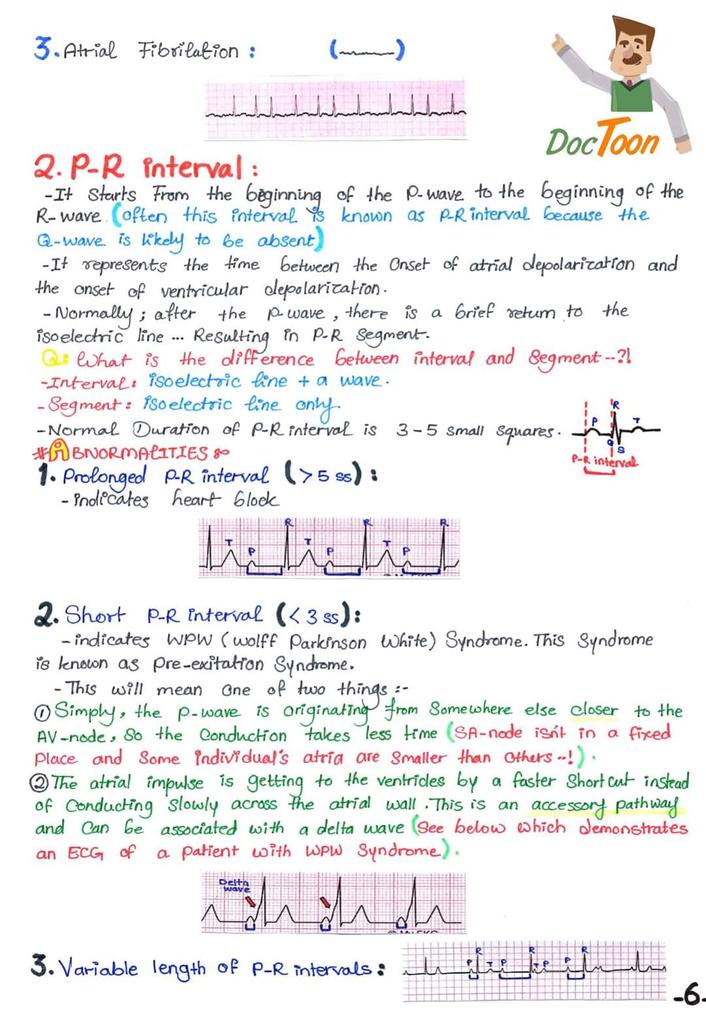 3. Atrial Fibrilation : (﹏)
DocToon
2. P-R interval :
-It Starts From the beginning of the P-wave to the beginning of the
R-wave. (often this interval is known as P-R interval because the
Q-wave is likely to be absent)
-It represents the time between the Onset of atrial depolarization and
the onset of ventricular depolarization.
-Normally ; after the P-wave , there is a brief return to the
isoelectric line ... Resulting in P-R Segment.
Q: What is the difference between interval and Segment --?!
-Interval: isoelectric line + a wave.
-Segment: isoelectric line only.
-Normal Duration of P-R interval is 3-5 small squares.
P R T Q S
P-R interval
# ABNORMALITIES
1. Prolonged P-R interval (>5 ss) :
-indicates heart block
T P R T P R T P R
2. Short P-R interval (<3 ss) :
-indicates WPW (Wolff Parkinson White) Syndrome. This Syndrome
is known as Pre-exitation Syndrome.
- This will mean one of two things :-
① Simply, the P-wave is originating from Somewhere else closer to the
AV-node, So the Conduction takes less time (SA-node isn't in a fixed
Place and Some individual's atria are Smaller than Others --!) .
② The atrial impulse is getting to the ventricles by a faster Shortcut instead
of Conducting Slowly across the atrial wall . This is an accessory pathway
and Can be associated with a delta wave (See below which demonstrates
an ECG of a patient with WPW Syndrome) .
Delta
wave
3. Variable length of P-R intervals :
P R T P R T P R
-6-